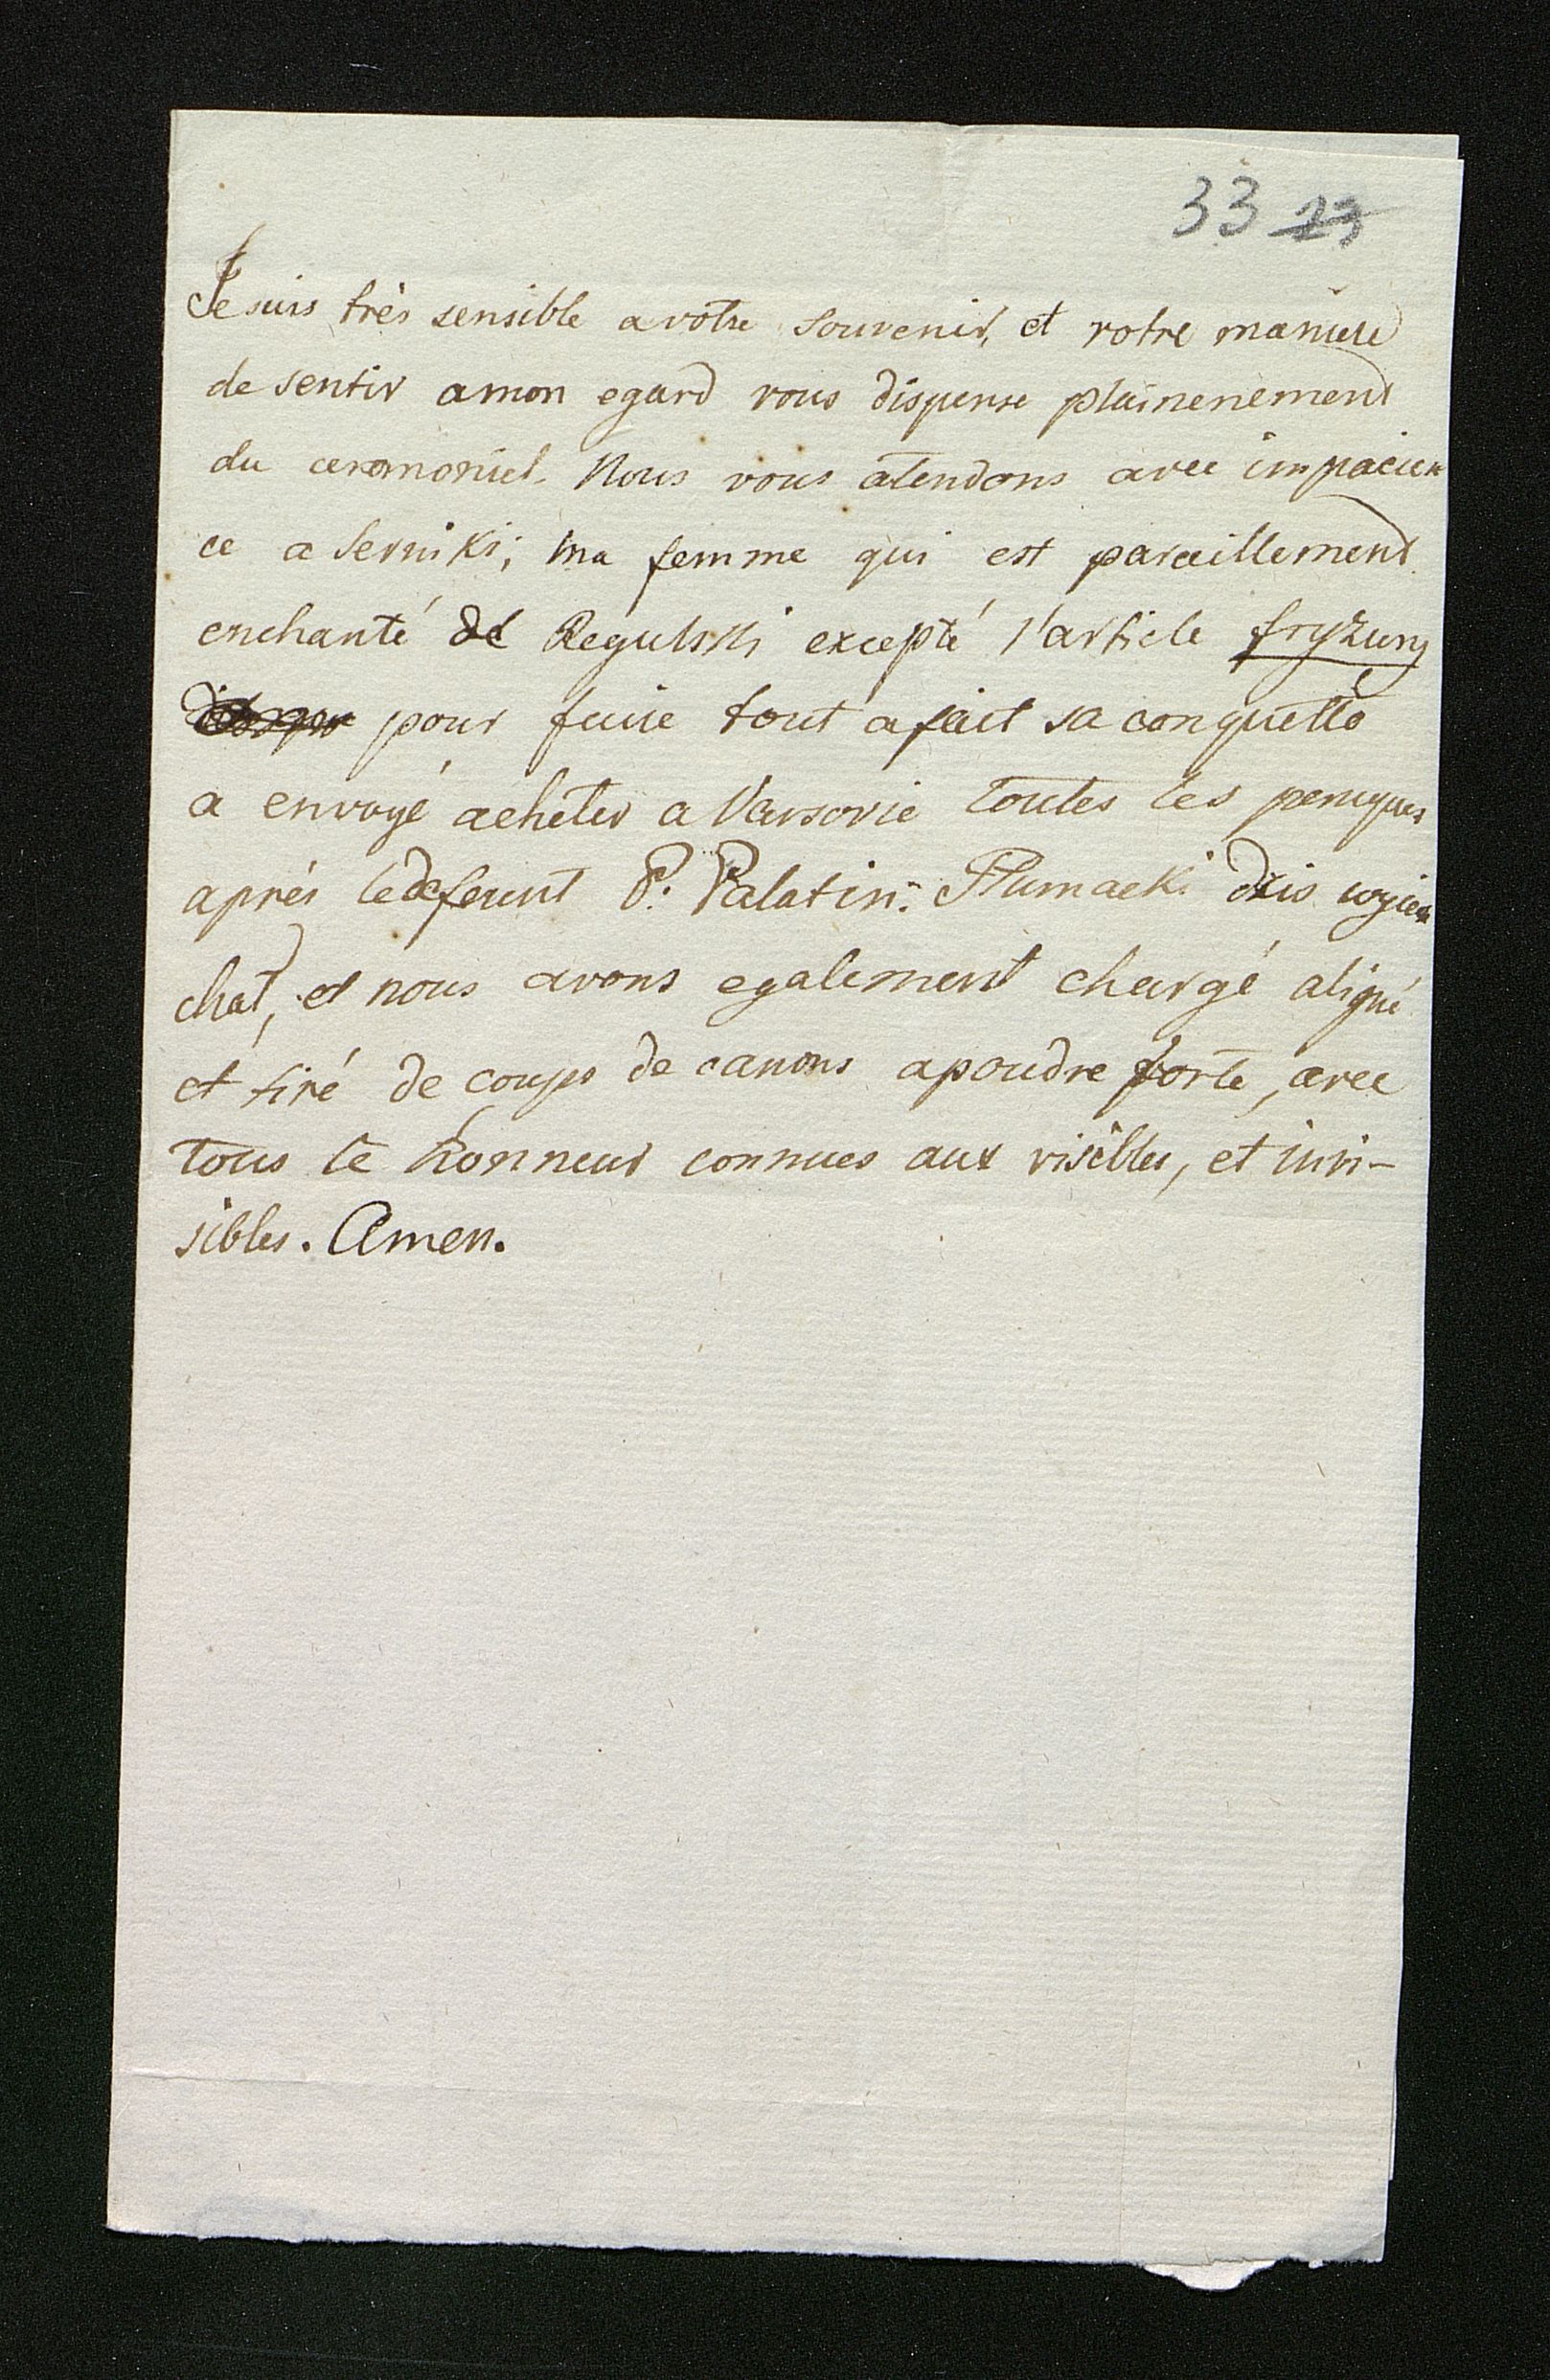 33 23
Je suis très sensible a votre souvenir, et votre maniere
de sentir a mon egard vous dispense plainenement
du ceremoniel. Nous vous atendons avec impacien
ce a Serniki; ma femme qui est paraillement
enchanté de Regulski excepté l'article fryzury
pour faire tout a fait sa conquette
a envoyé acheter a Varsovie toutes les peruques
après le defeunt P. Palatin. Tłumacki dzis wyjie
chał, et nous avons egalement chargé aligné
et tiré de coups de canons a poudre forte, avec
tous le honneur connues aux visibles, et invi-
sibles. Amen.